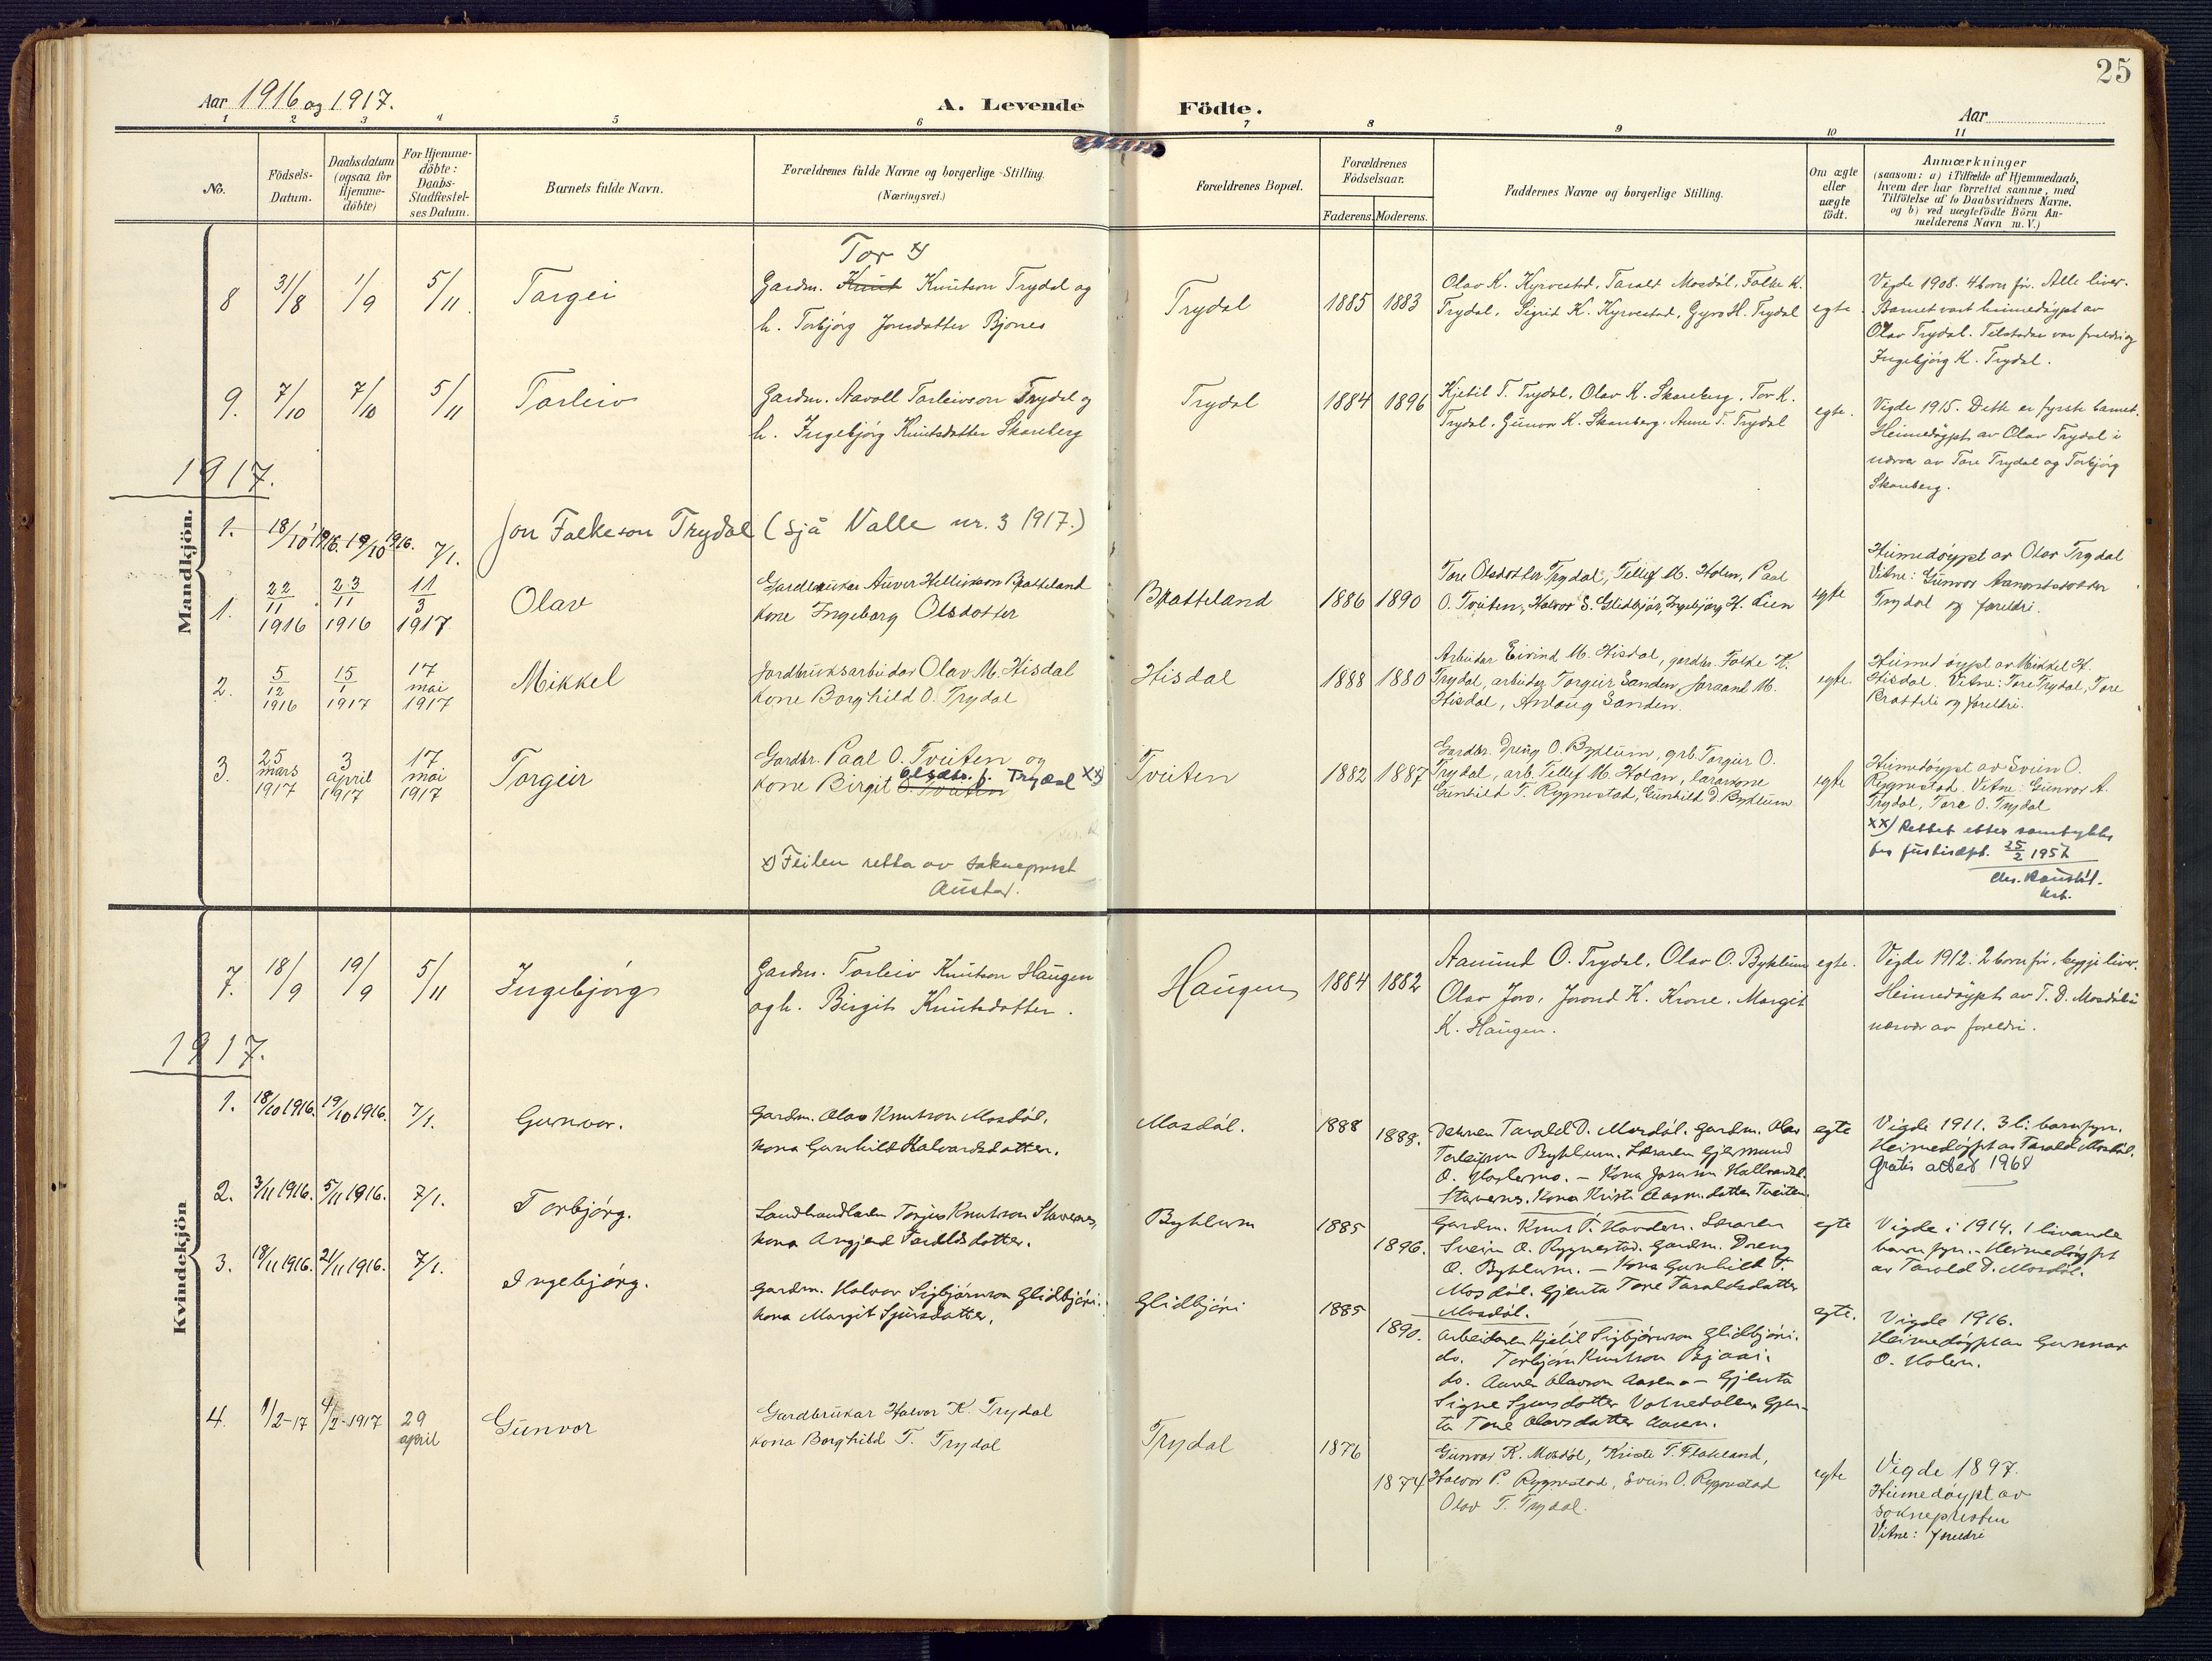 25
Aar 1916 og 1917.
A. Levende Födte.
Aar
1 2 3 4 5 6 7 8 9 10 11
No.
Födsels-
Datum.
Daabsdatum
(ogsaa for
Hjemme-
döbte)
For Hjemme-
döbte:
Daabs-
Stadfæstel-
ses Datum.
Barnets fulde Navn.
Forældrenes fulde Navne og borgerlige Stilling.
(Næringsvei.)
Forældrenes Bopæl.
Forældrenes
Födselsaar.
Faderens. Moderens.
Faddernes Navne og borgerlige Stilling.
Om ægte
eller
uægte
födt.
Anmærkninger
(saasom: a) i Tilfælde af Hjemmedaab,
hvem der har forrettet samme, med
Tilföielse af to Daabsvidners Navne.
og b) ved uægtefödte Börn An-
melderens Navn m. V.)
Mandkjön.
8 31/8 1/9 5/11 Torgei
Tor x)
Gardm. Knut Knutson Trydal og
h. Torbjörg Jonsdotter Bjones
Trydal 1885 1883
Olav K. Kyrvestad, Tarald Mosdöl, Folke K.
Trydal, Sigrit K. Kyrvestad, Gyro H. Trydal
egte.
Vigde 1908. 4 born för. Alle liver.
Barnet vart heimedöypt av
Olav Trydal. Tilstades var foreldri og
Ingebjörg K. Trydal.
9. 7/10 7/10 5/11 Torleiv
Gardm. Aavoll Torleivson Trydal og
h. Ingebjörg Knutsdotter Skanberg
Trydal 1884 1896
Kjetil T. Trydal, Olav K. Skanberg, Tor K.
Trydal, Gunvor K. Skanberg. Anne T. Trydal
egte.
Vigde 1915. Dette er fyrste barnet.
Heimedöypt av Olav Trydal i
nærvær av Tore Trydal og Torbjörg
Skanberg.
1917.
1. 18/10 1916. 19/10 1916. 7/1. Jon Folkeson Trydal (sjå Valle nr. 3 1917.)
1. 22/11 1916 23/11 1916 11/3 1917 Olav
Gardbrukar Auver Hellikson Bratteland
kone Ingeborg Olsdotter
Bratteland 1886 1890
Tore Olsdotter Trydal, Tellef M. Holen, Paal
O. Tveiten, Halvor S. Glidbjör, Ingebjörg H. Lien
egte
Heimedöypt av Olav Trydal
Vitne: Gunvor Aanonsdotter
Trydal og foreldri.
2. 5/12 1916 15/1 1917 17 mai 1917 Mikkel
Jordbruksarbeider Olav M. Hisdal
kone Borghild O. Trydal
Hisdal 1888 1880
Arbeidar Eivind M. Hisdal, gardbr. Folke K.
Trydal, arbeider Torgeir Sanden, Joraand M.
Hisdal, Andaug Sanden.
egte
Heimedöypt av Mikkel H.
Hisdal. Vitne: Tore Trydal, Tore
Bratteli og foreldri.
3. 25 mars 1917 3 april 1917 17 mai 1917 Torgeir
Gardbr. Paal O. Tveiten og
kone Birgit O. Tveiten Olsdtr. f. Trydal xx)
Tveiten 1882 1887
Gardbr. Dreng O. Byklum, grb. Torgeir O.
Trydal, arb. Tellef M. Holen, lærarkone
Gunhild T. Rygnestad, Gunhild D. Byklum
egte
Heimedöypt av Svein O.
Rygnestad. Vitne: Gunvor A.
Trydal, Tore O. Trydal
xx) Rettet etter samtykke
fra justisdept. 25/2 1957
x) Feilen retta av sokneprest
Austad.
Kvindekjön
7. 18/9 19/9 5/11 Ingebjörg
Gardm. Torleiv Knutson Haugen
og h. Birgit Knutsdotter.
Haugen 1884 1882
Aamund O. Trydal, Olav O. Byklum
Olav Jovo, Jorond K. Krone, Margit
K. Haugen.
egte.
Vigde 1912. 2 born för, beggje liver.
Heimedöypt av T. D. Mosdöl i
nærvær av foreldri.
1917.
1. 18/10 1916. 19/10 1916. 7/1. Gunvor.
Gardm. Olav Knutson Mosdöl,
kona Gunhild Halvardsdotter.
Mosdöl. 1888 1888.
Tarald D. Mosdöl. Gardm. Olav
Torleivson Byklum. Læraren Gjermund
O. – Kona Hallvardsd.
Stavenes. Kona Kristi Aasm.dotter Tveiten.
egte
Vigde 1911. 3 li: barn fyrr.
Heimedöypt av Tarald Mosdöl.
Gratis attest 1968
2. 3/11 1916. 5/11 1916. 7/1. Torbjörg.
Landhandlaren Torjus Knutson Stavenes,
kona Angjerd Taraldsdotter.
Byklum 1885 1896.
Gardm. Knut T. Hovden. Læraren
Svein O. Rygnestad. Gardm. Dreng
O. Byklum. – Kona Gunhild T.
Mosdöl. Gjenta Tone Taraldsdotter
Mosdöl.
egte
Vigde i 1914. 1 livande
barn fyrr. – Heimedöypt
av Tarald D. Mosdöl.
3. 18/11 1916. 21/11 1916. 7/1. Ingebjörg.
Gardm. Halvor Sigbjörnson Glidbjöri.
kona Margit Sjursdotter.
Glidbjöri 1885 1890.
Arbeidaren Kjetil Sigbjörnson Glidbjöri.
do. Torbjörn Knutson Bjaai.
do. Olavson – Gjenta
Signe Sjursdotter Vatnedalen, Gjen-
ta Tone Olavsdotter
egte.
Vigde 1916.
Heimedöypt av Gunnar
O. Holen.
4. 1/2-17 4/2-1917 29 april Gunvor
Gardbrukar Halvor K. Trydal
kona Borghild T. Trydal
Trydal 1876 1874
Gunvor K. Mosdöl, Kristi T. Flateland,
Halvor P. Rygnestad, Svein O. Rygnestad
Olav T. Trydal.
egte
Vigde 1897.
Heimedöypt av
soknepresten
Vitne: foreldri